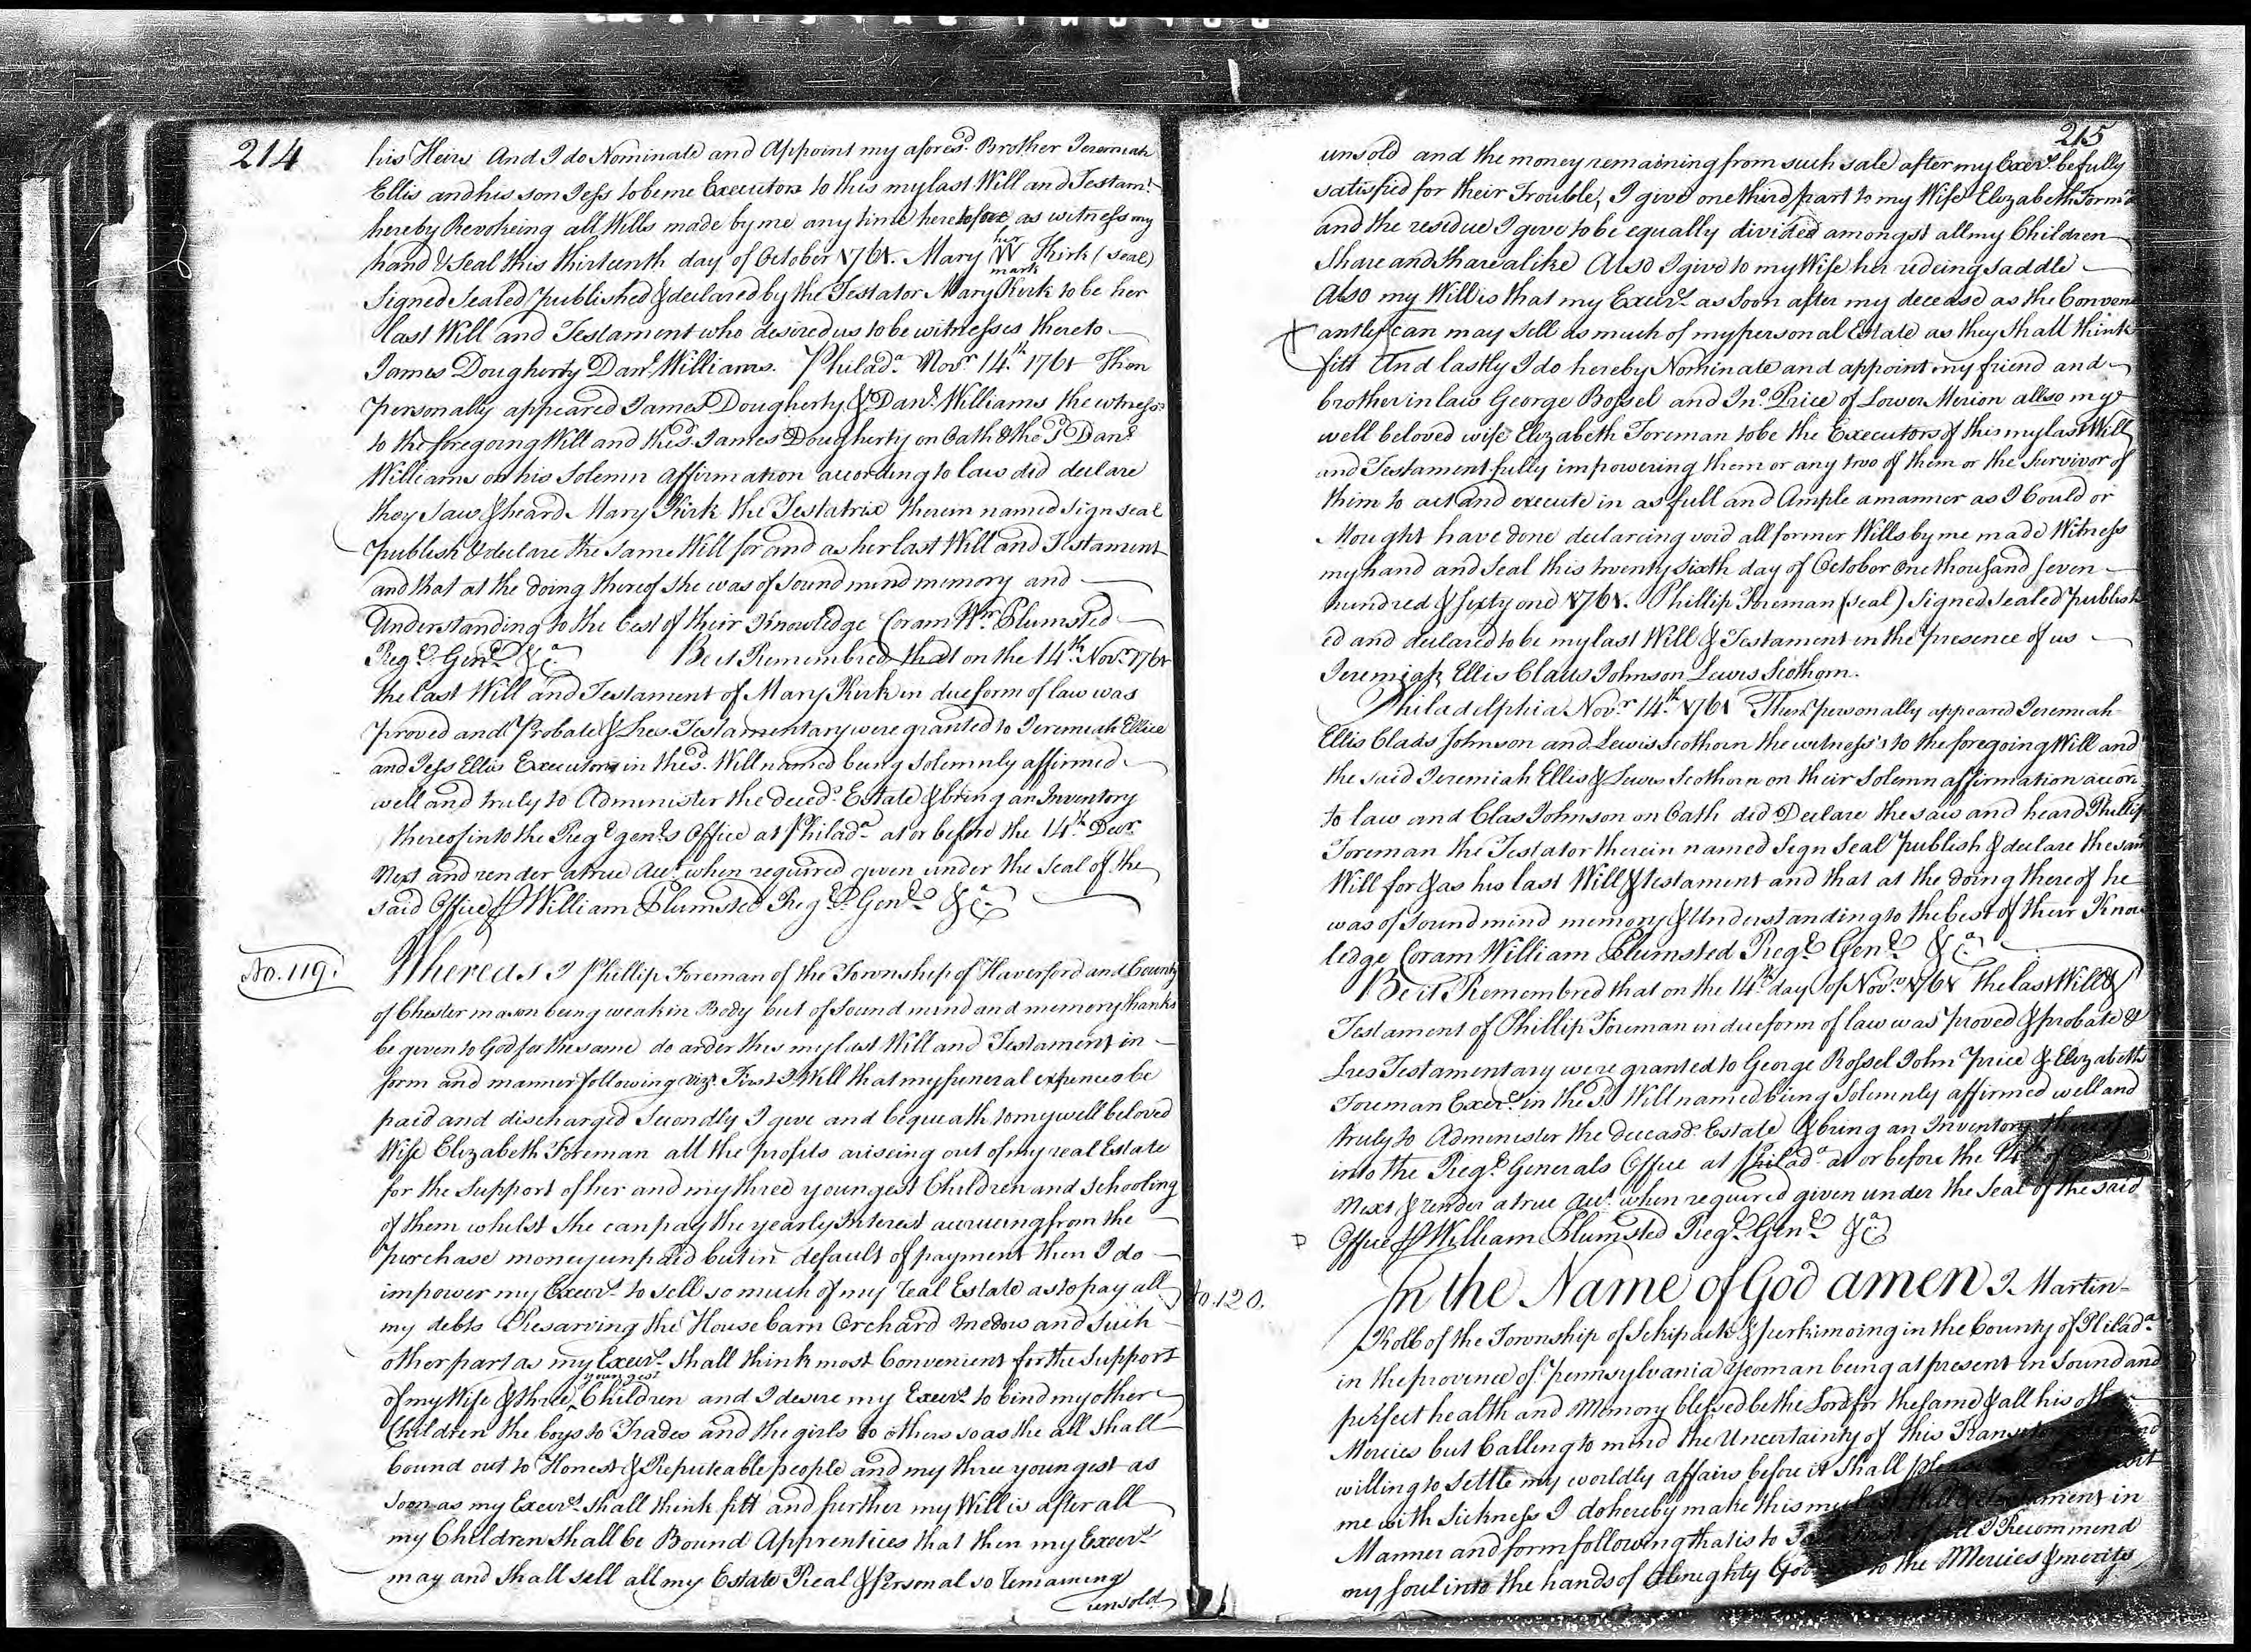 214
his Heirs And I do Nominate and Appoint my afores.d Brother Jeremiah
Ellis and his son Jess to be me Executors to this my last Will and Testam.t
hereby Revokeing all Wills made by me any time heretofore as witness my
hand & Seal this thirteenth day of October 1761. Mary her W mark Kirk (seal)
Signed Sealed published & declared by the Testator Mary Kirk to be her
last Will and Testament who desired us to be witnesses thereto
James Dougherty Dan.l Williams. Philad.a Nov.r 14.th 1761 Then
personally appeared James Dougherty & Dan.l Williams the witness's
to the foregoing Will and the s.d James Dougherty on Oath & the s.d Dan.l
Williams on his Solemn Affirmation according to law did declare
they saw & heard Mary Kirk the Testatrix therein named sign seal
publish & declare the same Will for and as her last Will and Testament
and that at the doing thereof she was of Sound mind memory and
Understanding to the best of their Knowledge Coram W.m Plumsted
Reg.r Gen.l &c.a Be it Remembred that on the 14.th Nov.r 1761
the last Will and Testament of Mary Kirk in due form of law was
proved and Probate & Lres. Testamentary were granted to Jeremiah Ellice
and Jess Ellis Executors in the s.d Will named being Solemnly affirmed
well and truly to Administer the deced.s Estate & bring an Inventory
thereof into the Reg.r gen.ls Office at Philad.a at or before the 14.th Decr.
Next and render a true Acc.t when required given under the Seal of the
said Office P William Plumsted Reg.r Gen.l &c.a
No. 119. Whereas I Phillip Foreman of the Township of Haverford and County
of Chester mason being weak in Body but of Sound mind and memory thanks
be given to God for the same do order this my last Will and Testament in
form and manner following viz.t First I Will that my funeral expences be
paid and discharged Secondly I give and bequeath to my well beloved
Wife Elizabeth Foreman all the profits ariseing out of my real Estate
for the Support of her and my three youngest Children and Schooling
of them whilst She can pay the yearly Interest accrueing from the
purchase money unpaid but in default of payment then I do
impower my Execu.rs to sell so much of my real Estate as to pay all
my debts Presarving the House barn Orchard Medow and Such
other part as my Execu.rs Shall think most Convenient for the Support
of my Wife & three youngest Children and I desire my Execu.rs to bind my other
Children the boys to Trades and the girls to others so as the all Shall
bound out to Honest & Reputeable people and my three youngest as
Soon as my Execu.rs Shall think fitt and further my Will is after all
my Children Shall be Bound Apprentices that then my Execu.rs
may and Shall sell all my Estate Real & Personal so remaining
unsold
215
unsold and the money remaining from such sale after my Exe.rs be fully
satisfied for their Trouble, I give one third part to my Wife Elizabeth Form.n
and the residue I give to be equally divided amongst all my Children
Share and Share alike Also I give to my Wife her rideing Saddle
Also my Will is that my Execu.rs as Soon after my decease as the Conveni
antley can may Sell as much of my personal Estate as they Shall think
fitt And lastly I do hereby Nominate and appoint my friend and
brother in law George Bossel and Jn.o Price of Lower Merion allso my
well beloved wife Elizabeth Foreman to be the Executors of this my last Will
and Testament fully impowering them or any two of them or the Survivor of
them to act and execute in as full and Ample a manner as I Could or
Mought have done declareing void all former Wills by me made Witness
my hand and Seal this twenty Sixth day of October One thousand Seven
hundred & Sixty one 1761. Phillip Foreman (seal) Signed Sealed publish
ed and declared to be my last Will & Testament in the presence of us
Jeremiah Ellis Claus Johnson Lewis Scothorn.
Philadelphia Nov.r 14.th 1761 Then personally appeared Jeremiah
Ellis Claus Johnson and Lewis Scothorn the witness's to the foregoing Will and
the said Jeremiah Ellis & Lewis Scothorn on their Solemn affirmation accor.
to law and Clas Johnson on Oath did Declare the saw and heard Phillip
Foreman the Testator therein named Sign Seal publish & declare the same
Will for & as his last Will & testament and that at the doing thereof he
was of Sound mind memory & Understanding to the best of their Know
ledge Coram William Plumsted Reg.r Gen.l &c.a
Be it Remembred that on the 14.th day of Nov.r 1761 the last Will &
Testament of Phillip Foreman in due form of law was proved & probate &
Lres Testamentary were granted to George Bossel John Price & Elizabeth
Foreman Exec.rs in the s.d Will named being Solemnly affirmed well and
truly to Administer the deceasd.s Estate & bring an Inventory thereof
into the Reg.r Generals Office at Philad.a at or before the 14.th of
Next & render a true Acc.t when required given under the Seal of the said
Office P William Plumsted Reg.r Gen.l &c.a
No. 120. In the Name of God amen I Martin
Kolb of the Township of Skipack & perkimoing in the County of Philad.a
in the province of Pennsylvania Yeoman being at present in Sound and
perfect health and Memory blessed be the Lord for the same & all his other
Mercies but Calleng to mind the Uncertainty of this Transitory and
willing to Settle my worldly affairs before it Shall please
me with Sickness I do hereby make this my last Will & Testament in
Manner and form following that is to of all I Recommend
my soul into the hands of Almighty God to the Mercies & merits